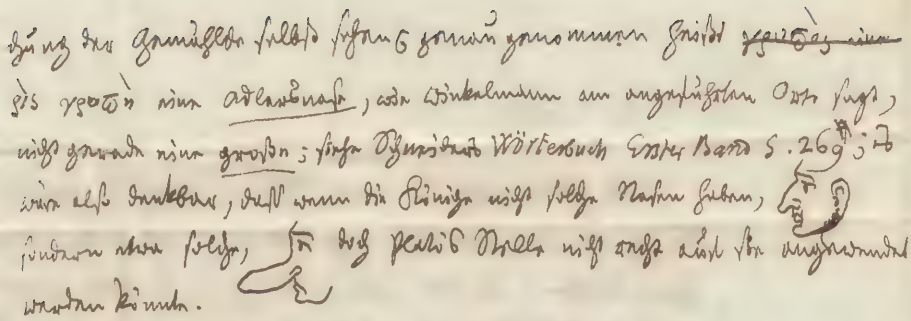 zung der Gemählde selbst sehen; genau genommen heißt γρυπὸς eine
ῥὶς γρυπὴ eine Adlersnase, wie Winkelmann am angeführten Orte sagt,
nicht gerade eine große; siehe Schneiders Wörterbuch Erster Band S. 269; Es
wäre also denkbar, daß wenn die Könige nicht solche Nasen haben,
sondern etwa solche, doch Platos Stelle nicht recht auf sie angewendet
werden könnte.